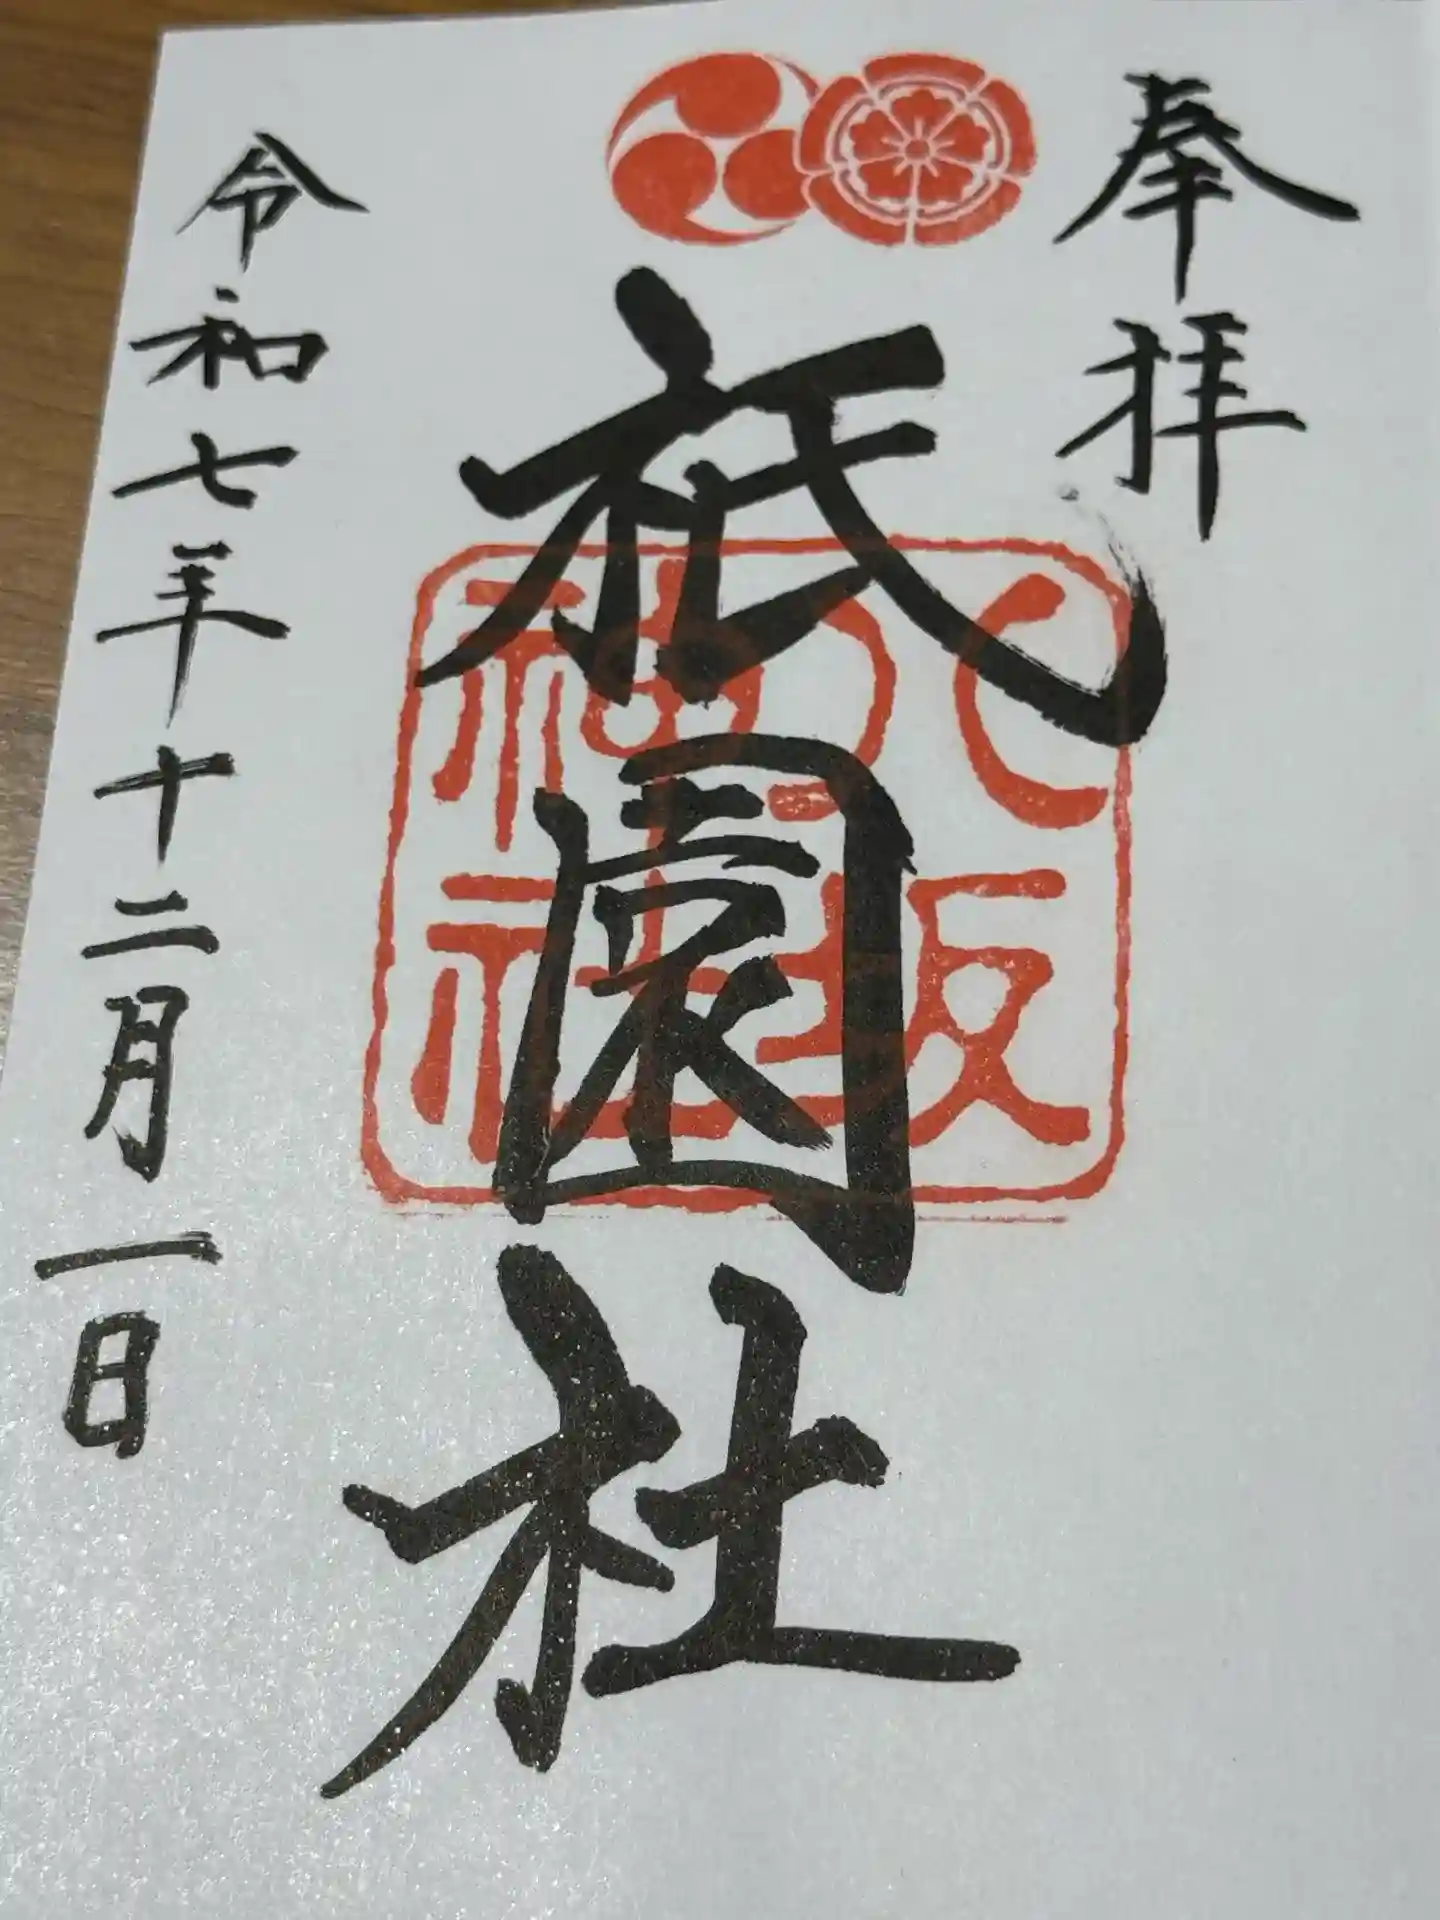 奉拝
祇園社
八坂
神社
令和七年十二月一日